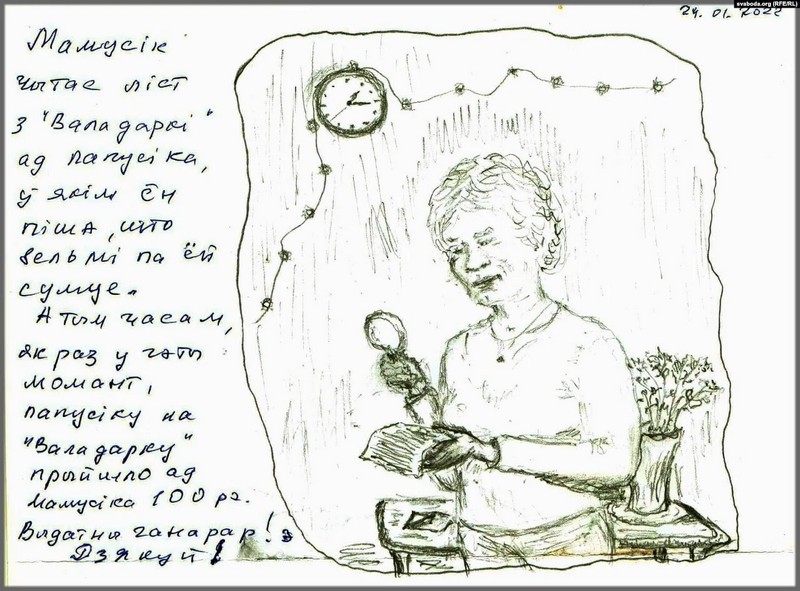 svaboda.org (RFE/RL)
24.01.2022
Мамусік
чытае ліст
з "Валадаркі"
ад папусіка,
ў якім ён
піша, што
вельмі па ёй
сумуе.
А тым часам,
як раз у гэты
момант,
папусіку на
"Валадарку"
прыйшло ад
мамусіка 100 рэ.
Выдатны ганарар!
Дзякуй!